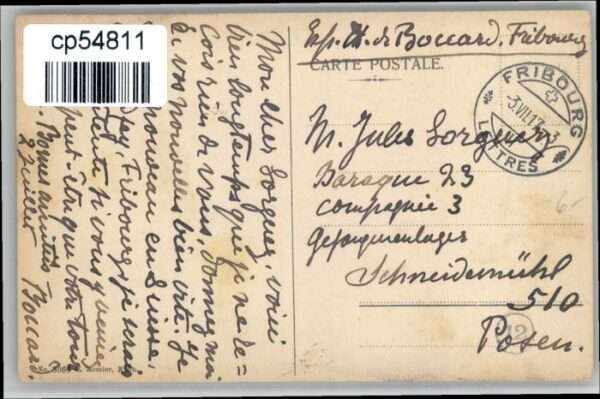 cp54811
Exp. Th. de Boccard, Fribourg
CARTE POSTALE.
FRIBOURG
3.VII.17
LETTRES
M. Jules Sorguez
Baraque 23
Compagnie 3
Gefangenenlager
Schneidemühl
510
Posen.
Mon cher Sorguez, voici
bien longtemps que je ne re=
çois rien de vous, donnez moi
vos nouvelles bien vite. Je
nouveau en Suisse,
Fribourg, je serais
si vous y veniez
peut-être que votre tour
Bonnes amitiés
2 Juillet Boccard.